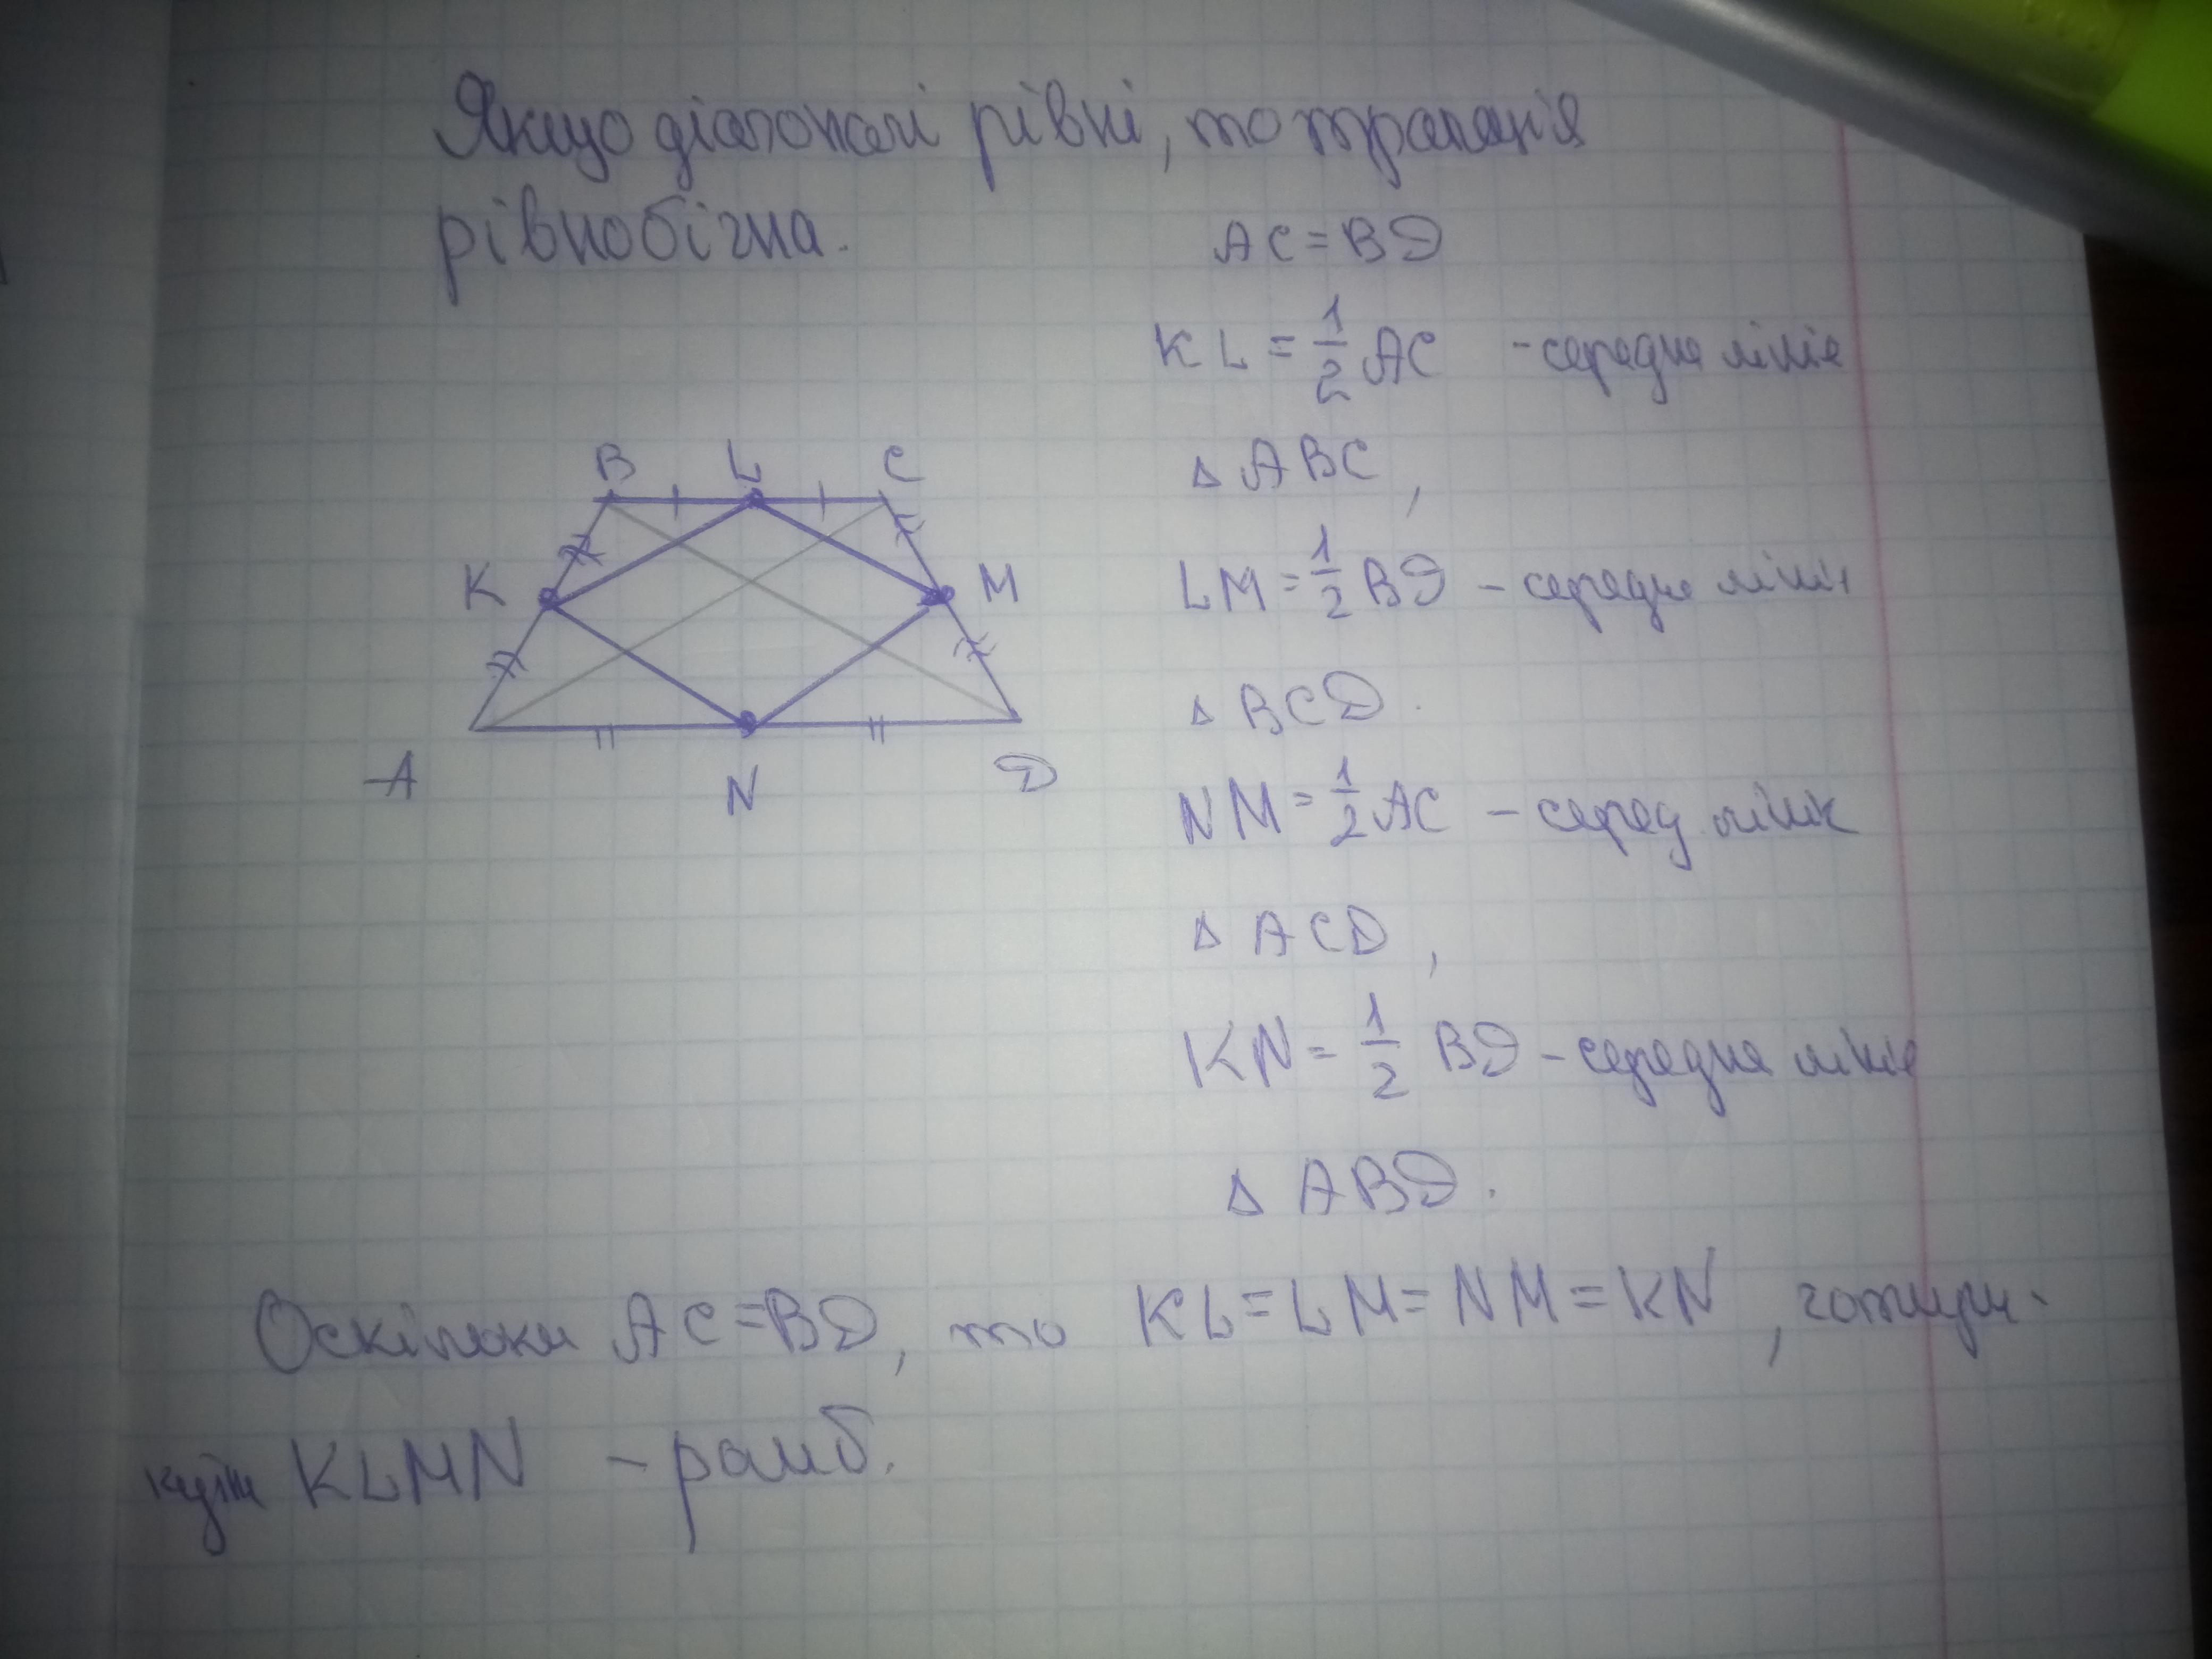 Якщо діагоналі рівні, то трапеція
рівнобічна.
AC = BD
KL = 1/2 AC - середня лінія
△ ABC,
B L C
LM = 1/2 BD - середня лінія
K M
△ BCD.
A N D
NM = 1/2 AC - серед лінія
△ ACD,
KN = 1/2 BD - середня лінія
△ ABD.
Оскільки AC = BD, то KL = LM = NM = KN, чотири-
кутник KLMN - ромб.